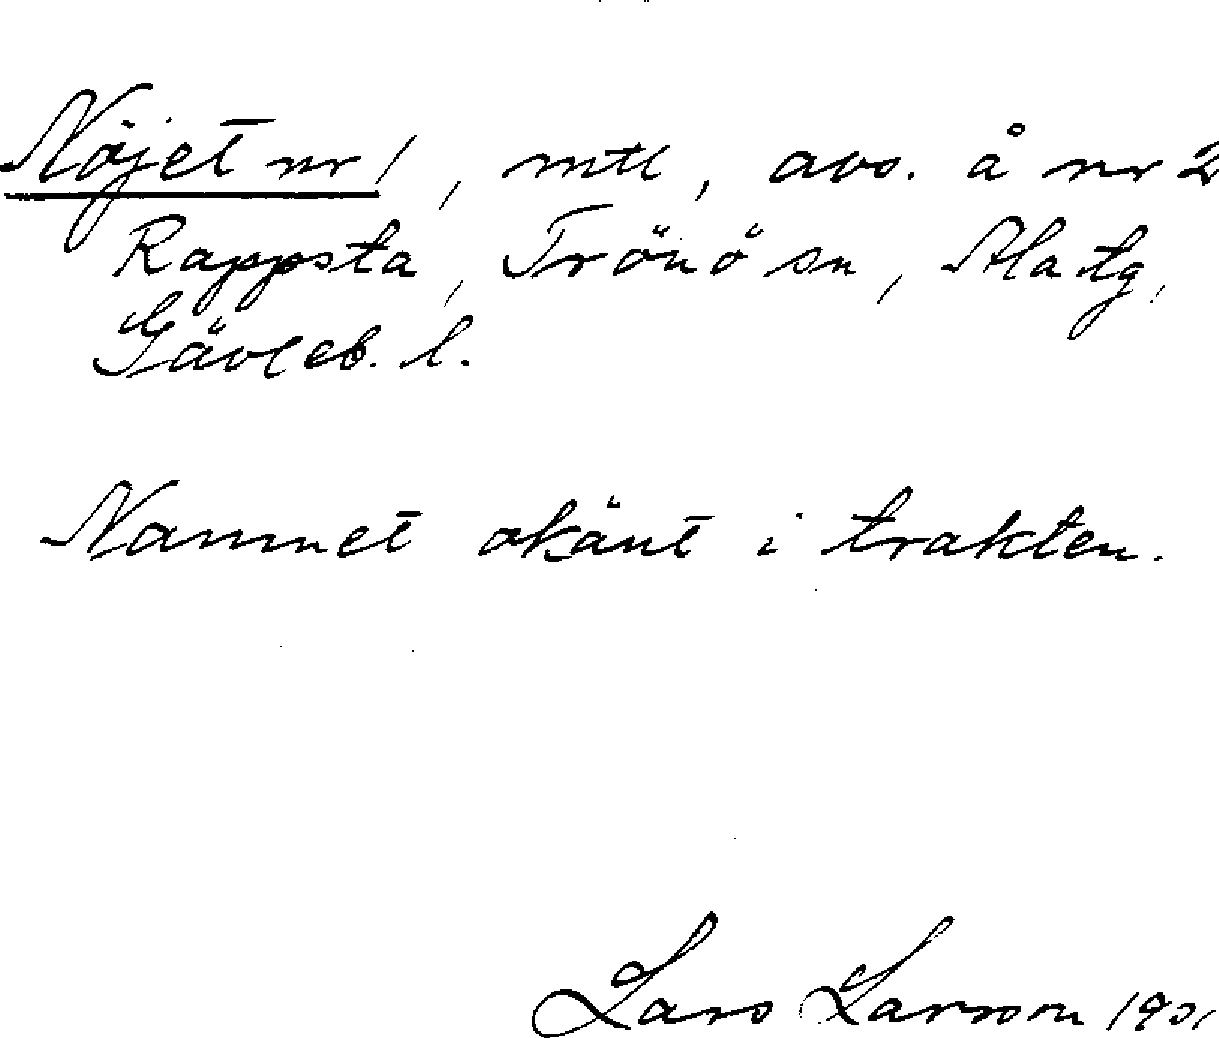 Nöjet nr 1, mtl, avs. å nr 2
Rappsta, Trönö sn, Ala tg,
Gävleb. l.
Namnet okänt i trakten.
Lars Larsson